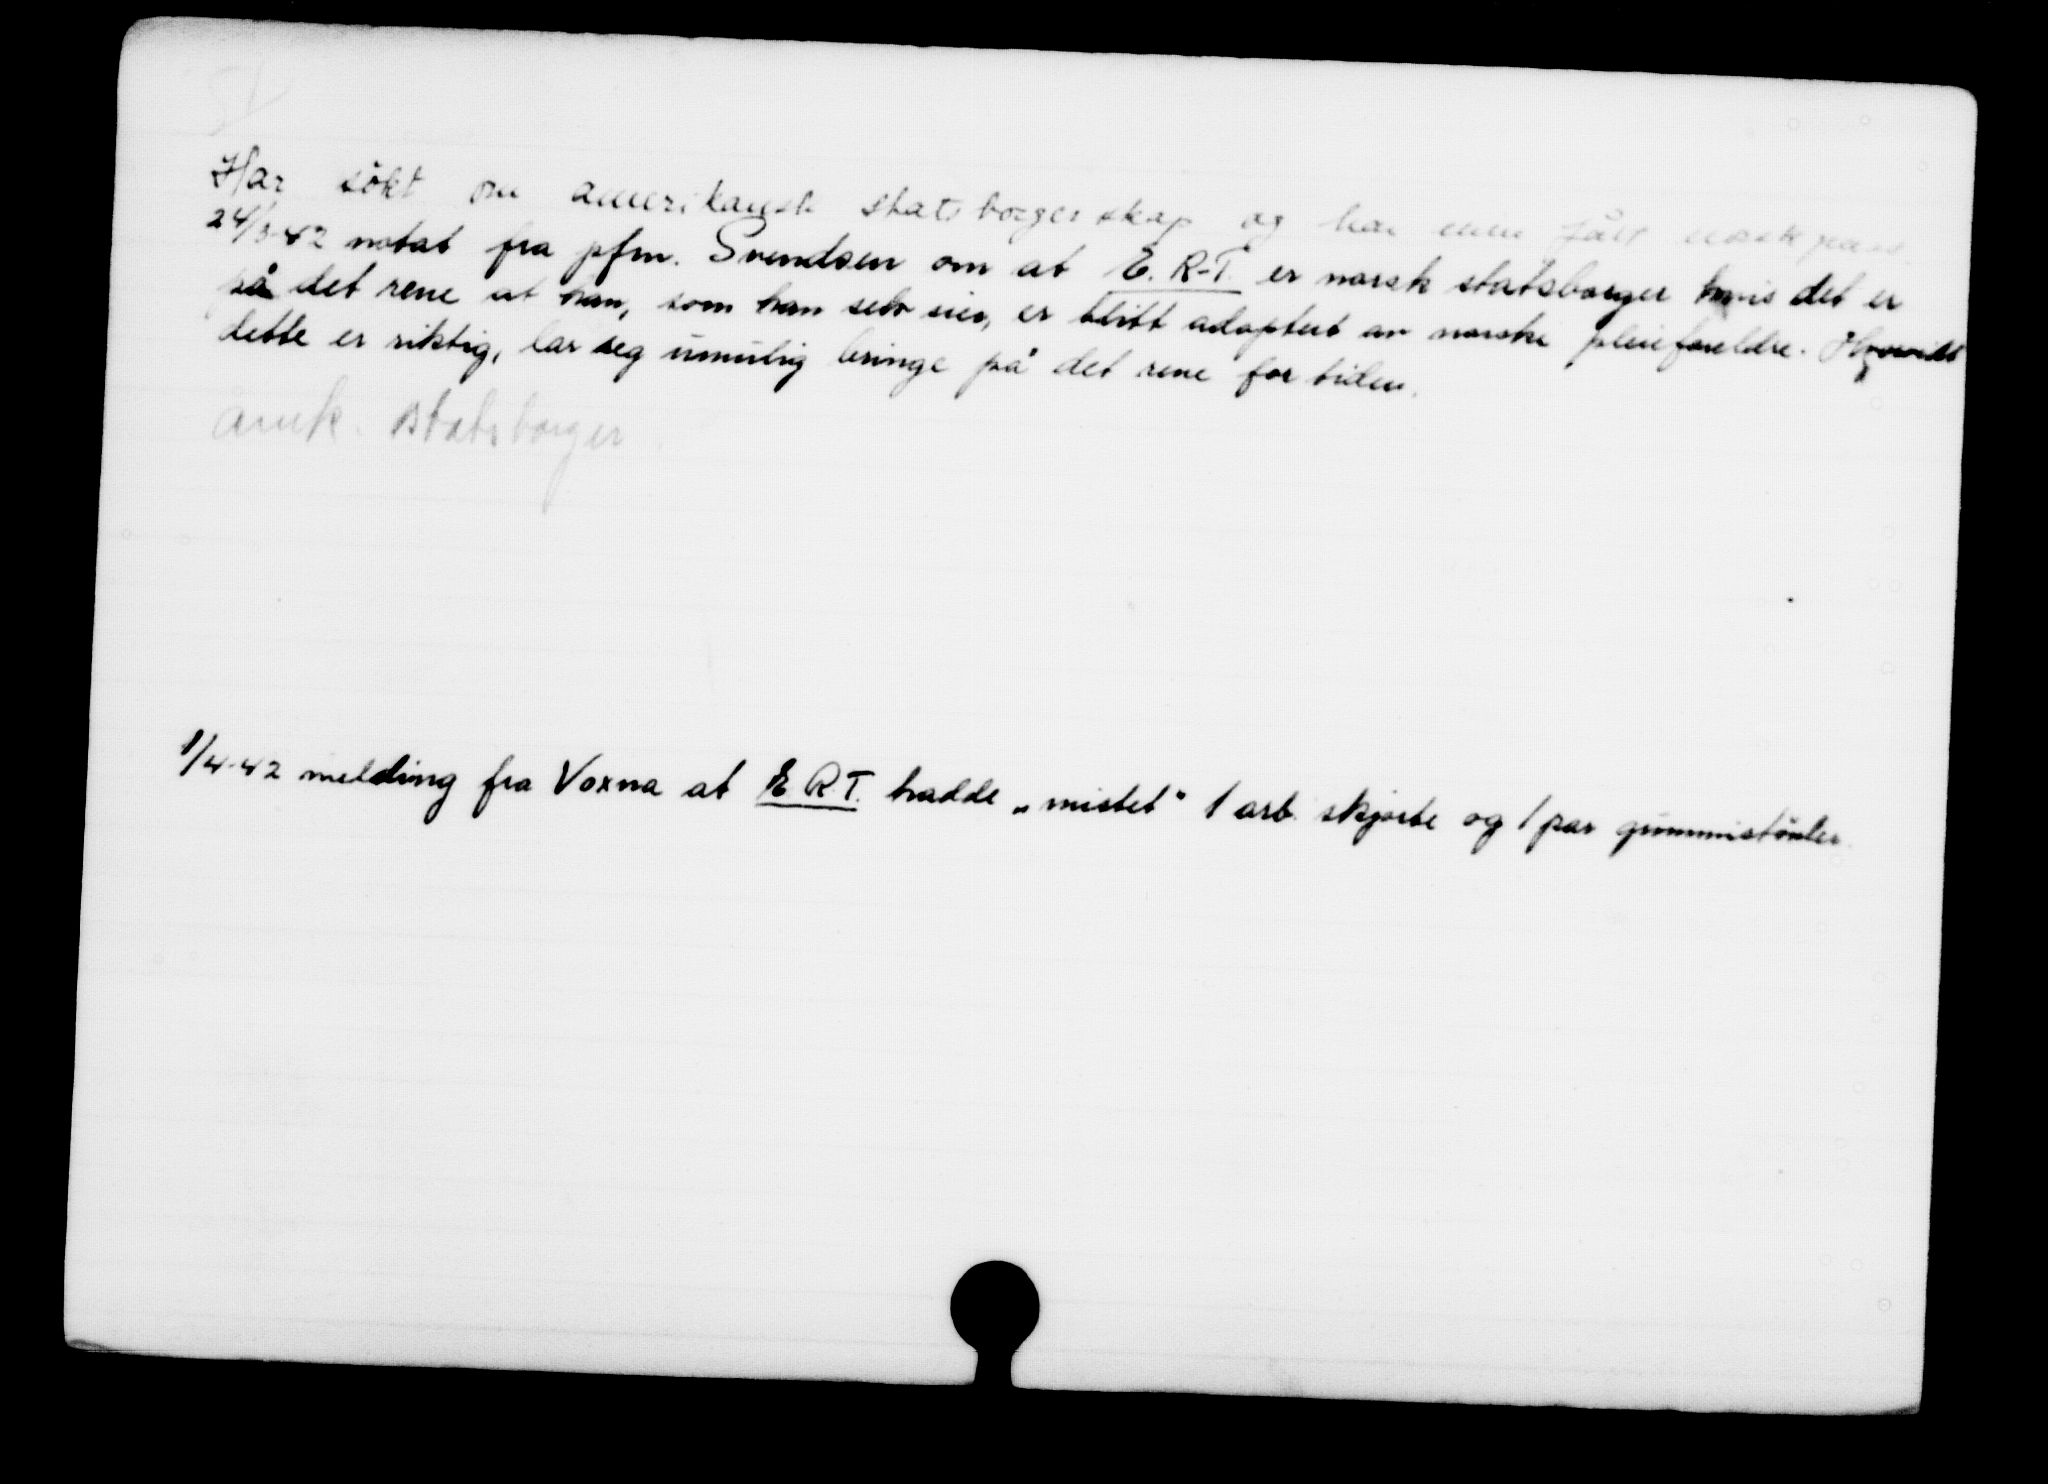 Har søkt om amerikansk statsborgerskap og har min fått norsk pass.
24/3-42 notat fra pfm. Svendsen om at E. R-T. er norsk statsborger hvis det er
på det rene at han, som han selv sier, er blitt adoptert av norske pleieforeldre. Hvorvidt
dette er riktig, lar seg umulig bringe på det rene for tiden.
amk. statsborger.
1/4-42 melding fra Voxna at E. R.T. hadde „mistet" 1 arb. skjorte og 1 par gummistøvler.